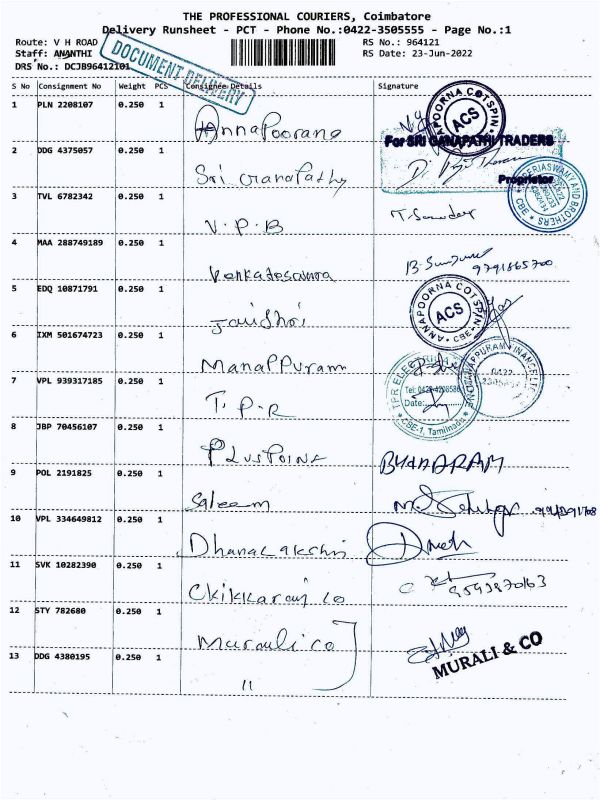 THE PROFESSIONAL COURIERS, Coimbatore
Delivery Runsheet - PCT - Phone No.:0422-3505555 - Page No.:1
Route: V H ROAD
RS No.: 964121
Staff: ANANTHI
RS Date: 23-Jun-2022
DRS No.: DCJB96412101
DOCUMENT DELIVERY
S No Consignment No Weight PCS Consignee Details Signature
1 PLN 2208107 0.250 1 Annapoorana
ANNAPOORNA COTSPIN ACS
For SRI GANAPATHI TRADERS
Proprietor
2 DDG 4375057 0.250 1 Sri Ganapathy
3 TVL 6782342 0.250 1 V.P.B T. Sundar
4 MAA 288749189 0.250 1 Venkadesawra
5 EDQ 10871791 0.250 1 Jaidhri
ANNAPOORNA COTSPIN ACS CBE
6 IXM 501674723 0.250 1 Manappuram
7 VPL 939317185 0.250 1 T.P.R
Date:
CBE-1, Tamilnadu
8 JBP 70456107 0.250 1 PlusPoint
9 POL 2191825 0.250 1 Saleem
10 VPL 334649812 0.250 1 Dhanalakshmi Dinesh
11 SVK 10282390 0.250 1
12 STY 782680 1 Murali co
MURALI & CO
13 DDG 4380195 0.250 1 11